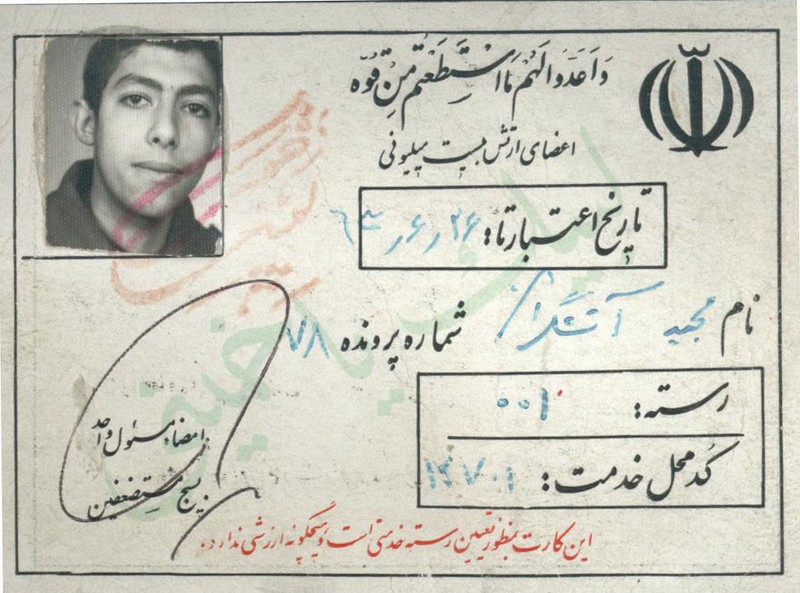 وَاَعَدّوالَهُم مَااستَطَعتُم مِن قُوّه
اعضای ارتش بیست میلیونی
تاریخ اعتبار تا: ۶۳٫۶٫۲۶
نام مجید
شماره پرونده ۷۸
رسته: ۰۰۱
کُد محل خدمت: ۱۲۷۰۱
امضاء مسئول واحد
بسیج مستضعفین
این کارت بمنظور تعیین رسته خدمتی است و هیچگونه ارزشی ندارد.
لبیک یا خمینی